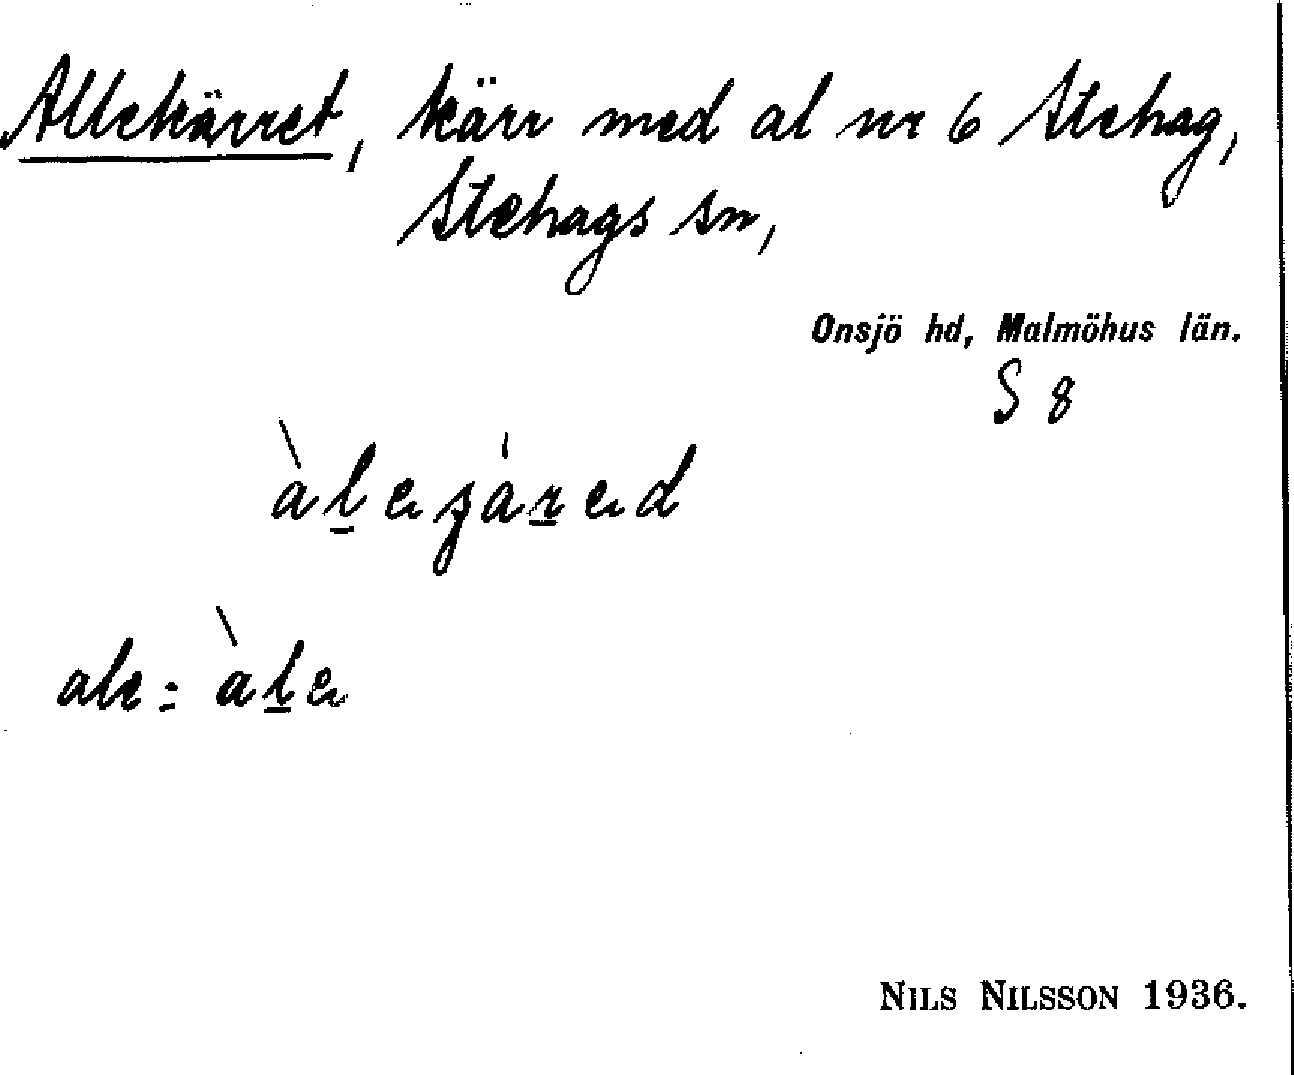 Allekärret, kärr med al nr 6 Stehag,
Stehags sn,
Onsjö hd, Malmöhus län.
S 8
àl̲eʒár̲ed
ale = àl̲e
NILS NILSSON 1936.